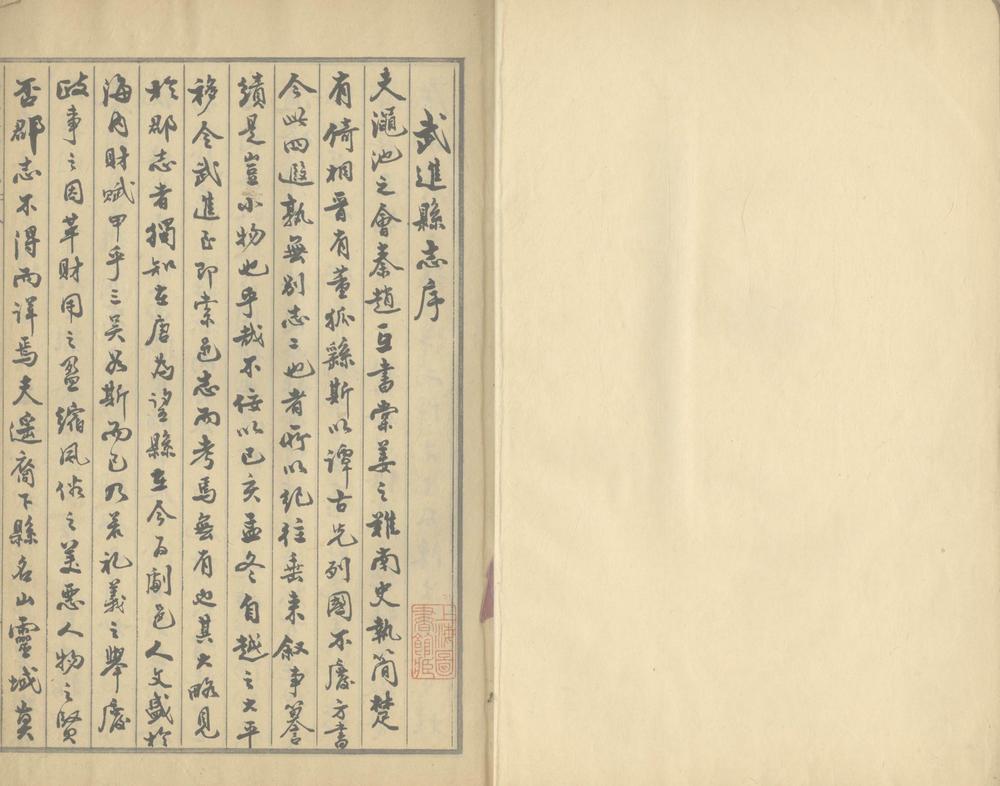 武進縣志序
夫澠池之會秦趙互書棠姜之難南史執簡楚
有倚相晋有董狐繇斯以譚古先列國不廢方書
今此四遐孰無別志志也者所以紀往垂来叙事纂
績是豈小物也乎哉不佞以己亥孟冬自越之太平
移令武進至即索邑志而考焉無有也其大略見
於郡志者獨知在唐為望縣在今為劇邑人文盛於
海内財賦甲乎三吴如斯而已乃若礼義之舉廢
政事之因革財用之盈縮風俗之美惡人物之賢
否郡志不得而詳焉夫遥裔下縣名山靈域莫
上海圖
書館藏